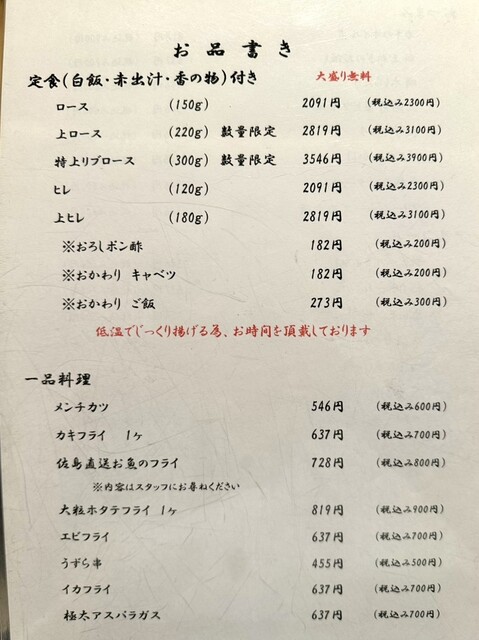 お品書き
定食(白飯・赤出汁・香の物)付き 大盛り無料
ロース (150g) 2091円 (税込み2300円)
上ロース (220g) 数量限定 2819円 (税込み3100円)
特上リブロース (300g) 数量限定 3546円 (税込み3900円)
ヒレ (120g) 2091円 (税込み2300円)
上ヒレ (180g) 2819円 (税込み3100円)
※おろしポン酢 182円 (税込み200円)
※おかわり キャベツ 182円 (税込み200円)
※おかわり ご飯 273円 (税込み300円)
低温でじっくり揚げる為、お時間を頂戴しております
一品料理
メンチカツ 546円 (税込み600円)
カキフライ 1ヶ 637円 (税込み700円)
佐島直送お魚のフライ 728円 (税込み800円)
※内容はスタッフにお尋ねください
大粒ホタテフライ 1ヶ 819円 (税込み900円)
エビフライ 637円 (税込み700円)
うずら串 455円 (税込み500円)
イカフライ 637円 (税込み700円)
極太アスパラガス 637円 (税込み700円)